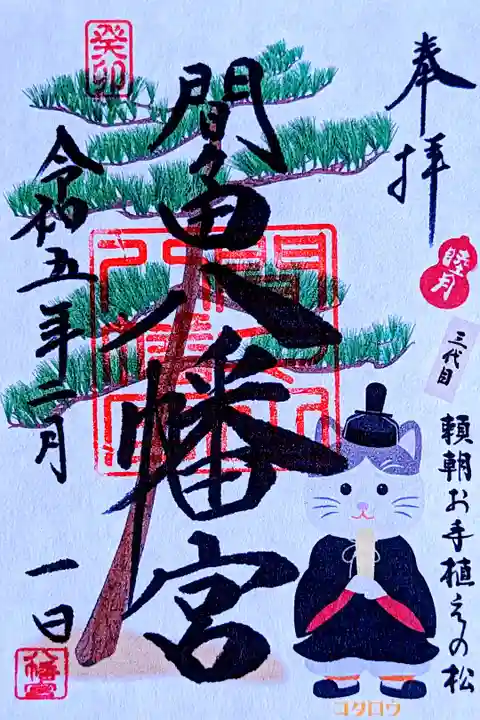 奉拝
睦月
三代目
頼朝お手植えの松
間々田八幡宮
癸卯
令和五年二月
一日
八幡宮
コタロウ